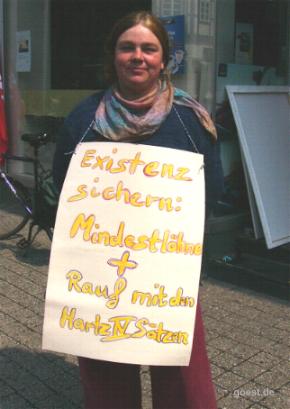 Existenz
sichern:
Mindestlöhne
+
Rauf mit den
Hartz IV Sätzen
goest.de